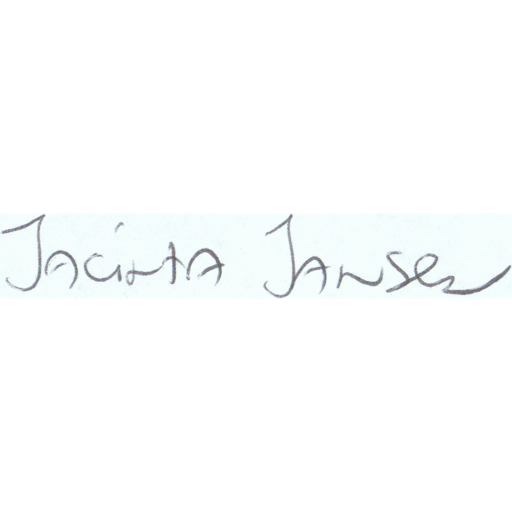 Jacinta Jansen